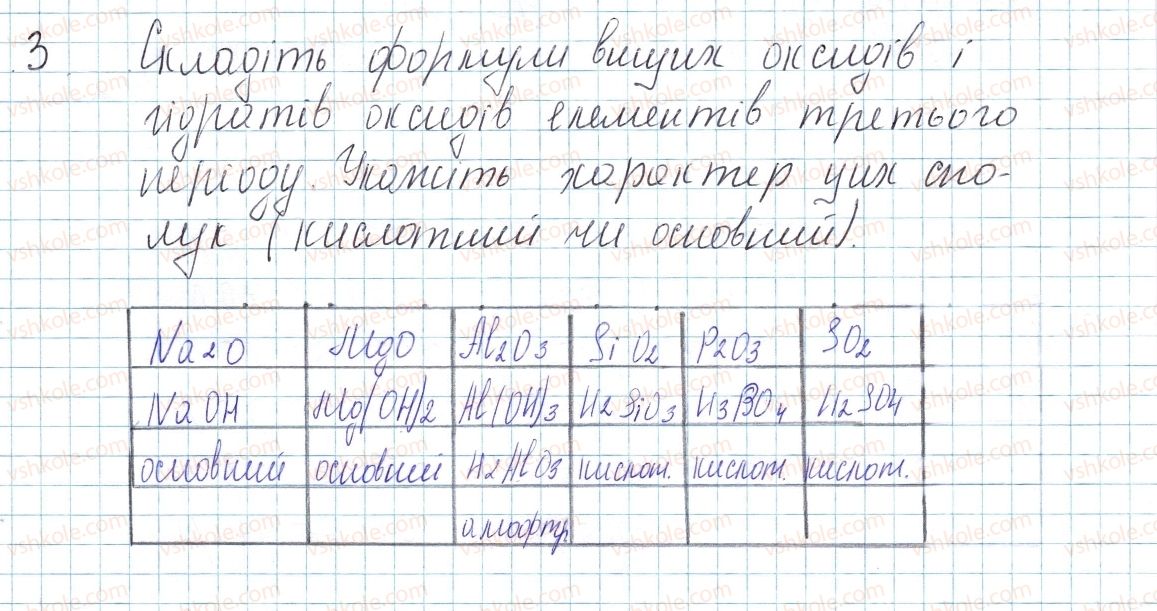 3 Складіть формули вищих оксидів і
гідратів оксидів елементів третього
періоду. Укажіть характер цих спо-
лук (кислотний чи основний).
Na2O MgO Al2O3 SiO2 P2O3 SO2
NaOH Mg(OH)2 Al(OH)3 H2SiO3 H3BO4 H2SO4
основний основний H2AlO3 кислот. кислот. кислот.
амфотр